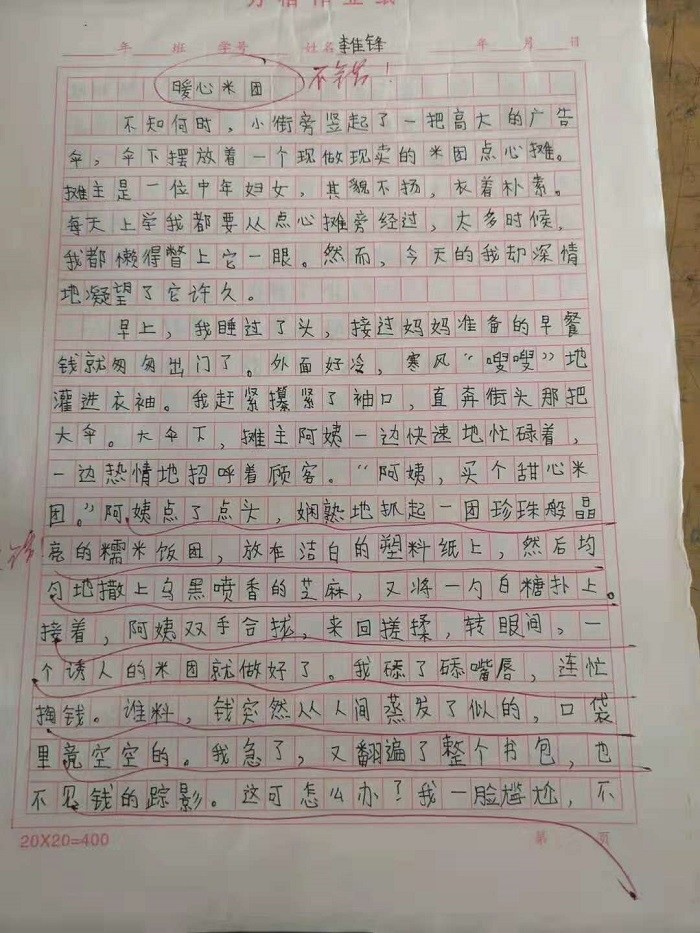 年 班 学号 姓名 李佳锋 年 月 日
暖心米团 不错!
不知何时，小街旁竖起了一把高大的广告
伞，伞下摆放着一个现做现卖的米团点心摊。
摊主是一位中年妇女，其貌不扬，衣着朴素。
每天上学我都要从点心摊旁经过，太多时候，
我都懒得瞥上它一眼。然而，今天的我却深情
地凝望了它许久。
早上，我睡过了头，接过妈妈准备的早餐
钱就匆匆出门了。外面好冷，寒风“嗖嗖”地
灌进衣袖。我赶紧攥紧了袖口，直奔街头那把
大伞。大伞下，摊主阿姨一边快速地忙碌着，
一边热情地招呼着顾客。“阿姨，买个甜心米
团。”阿姨点了点头，娴熟地抓起一团珍珠般晶
亮的糯米饭团，放在洁白的塑料纸上，然后均
匀地撒上乌黑喷香的芝麻，又将一勺白糖扑上。
接着，阿姨双手合拢，来回搓揉，转眼间，一
个诱人的米团就做好了。我舔了舔嘴唇，连忙
掏钱。谁料，钱突然从人间蒸发了似的，口袋
里竟空空的。我急了，又翻遍了整个书包，也
不见钱的踪影。这可怎么办？我一脸尴尬，不
20X20=400
第 页